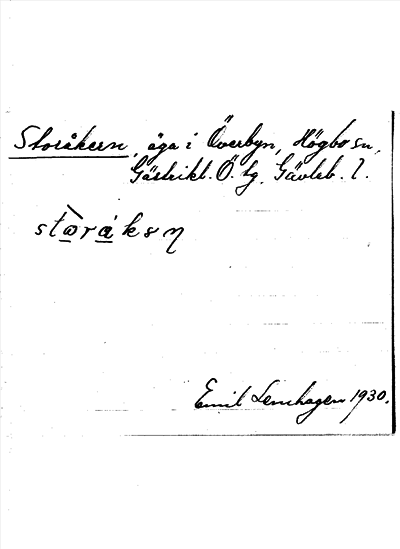 Storåkern, äga i Överbyn, Högbo sn,
Gästrikl. Ö. tg. Gävleb. l.
stòráksn
Emil Lenhagen 1930.